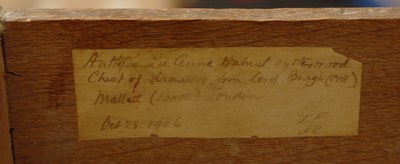 Antique Qu Anne Walnut oysterwood
Chest of drawers from Lord Burgh
Mallett (Bath) London
Oct 28. 1926